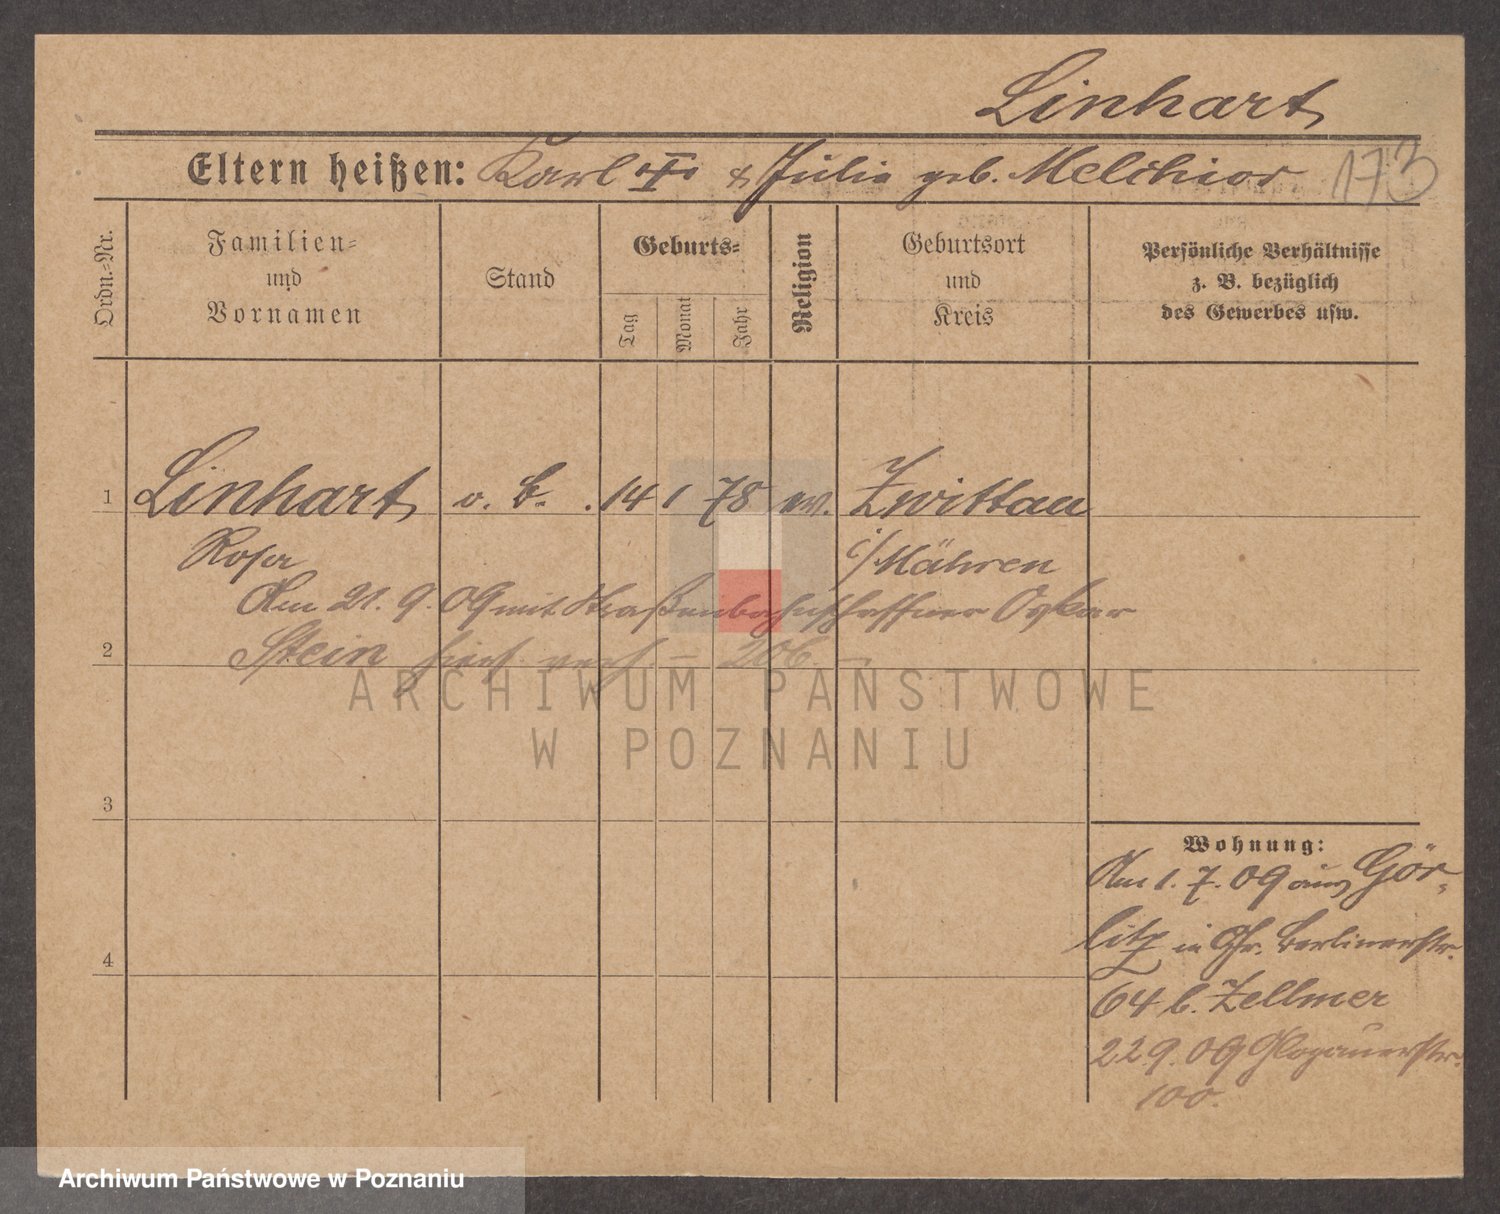 Linhart
Eltern heißen: Karl † & Julie geb. Melchior 173
Ordn.-Nr.
Familien-
und
Vornamen
Stand
Geburts-
Tag
Monat
Jahr
Religion
Geburtsort
und
Kreis
Persönliche Verhältnisse
z. B. bezüglich
des Gewerbes usw.
1 Linhart o. B. 14 1 78 Zwittau
Rosa i/Mähren
Am 21. 9. 09 mit Straßenbahnschaffner Oskar
2 Stein hier verh – 206 –
ARCHIWUM PAŃSTWOWE
W POZNANIU
3
4
Wohnung:
Am 1. 7. 09 aus Gör-
litz in Gr. Berlinerstr.
64 b. Zellmer
22 9. 09 Glogauerstr.
100.
Archiwum Państwowe w Poznaniu